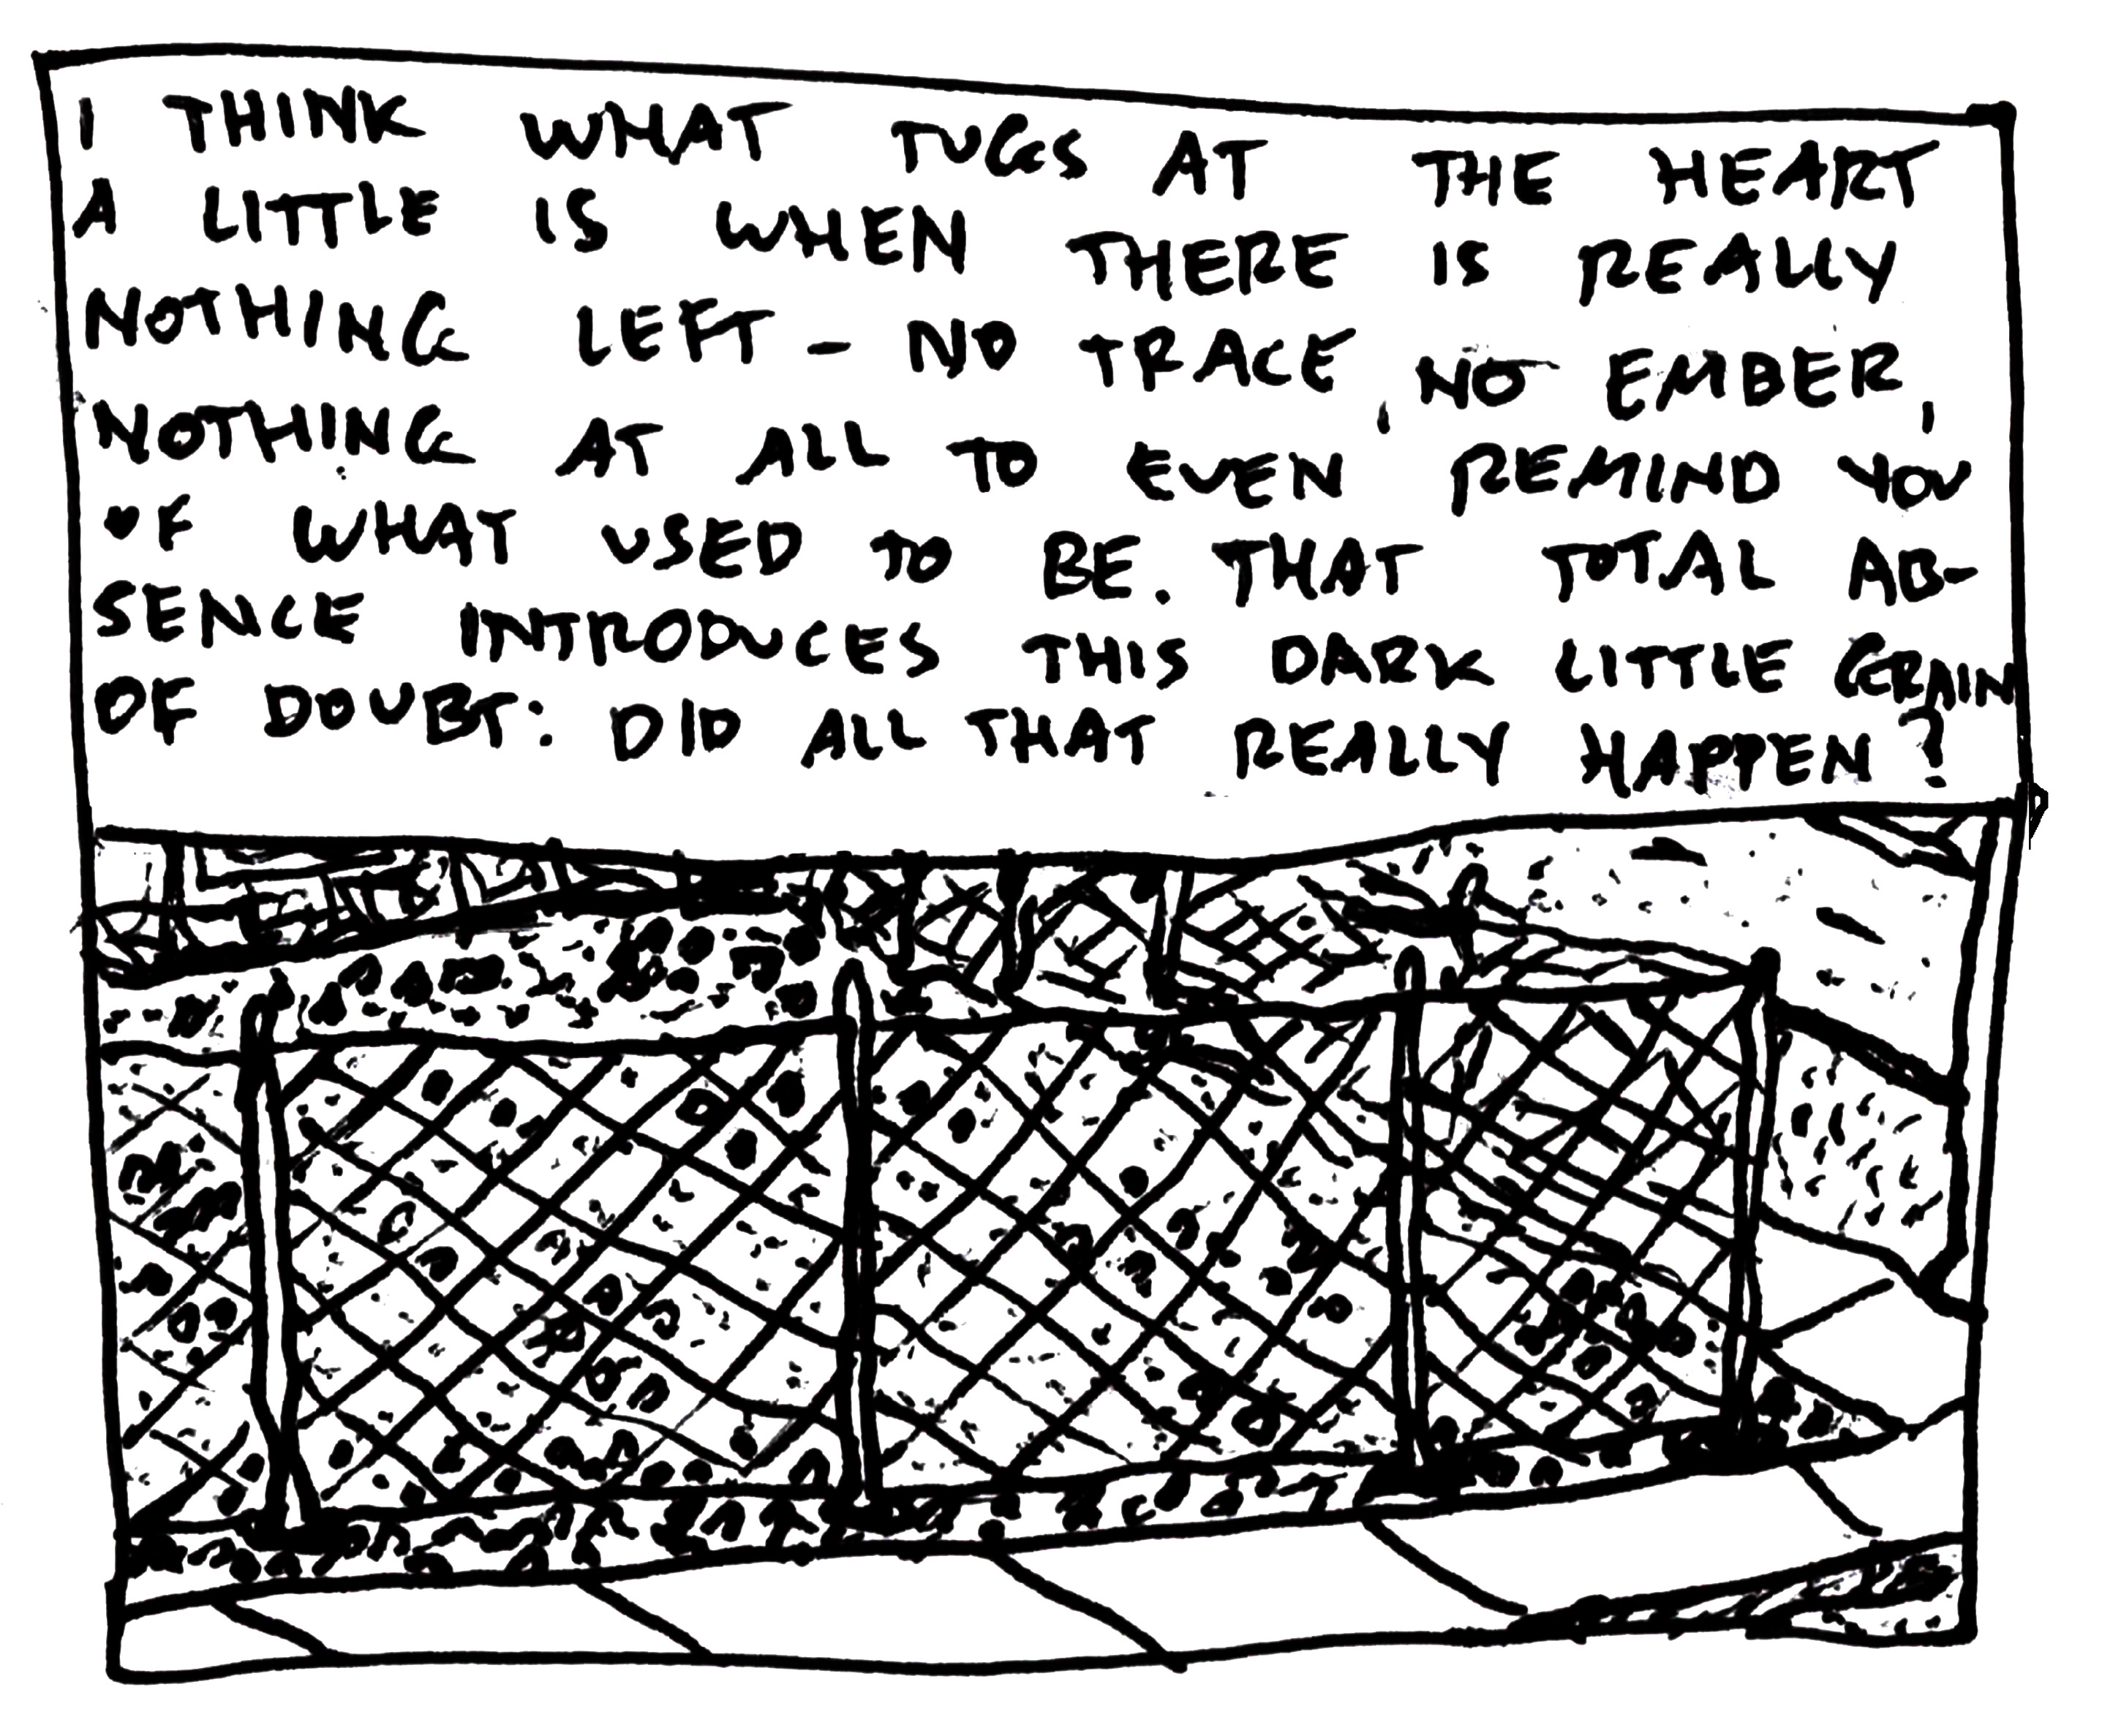 I THINK WHAT TUGS AT THE HEART
A LITTLE IS WHEN THERE IS REALLY
NOTHING LEFT - NO TRACE, NO EMBER,
NOTHING AT ALL TO EVEN REMIND YOU
OF WHAT USED TO BE. THAT TOTAL AB-
SENCE INTRODUCES THIS DARK LITTLE GRAIN
OF DOUBT: DID ALL THAT REALLY HAPPEN?